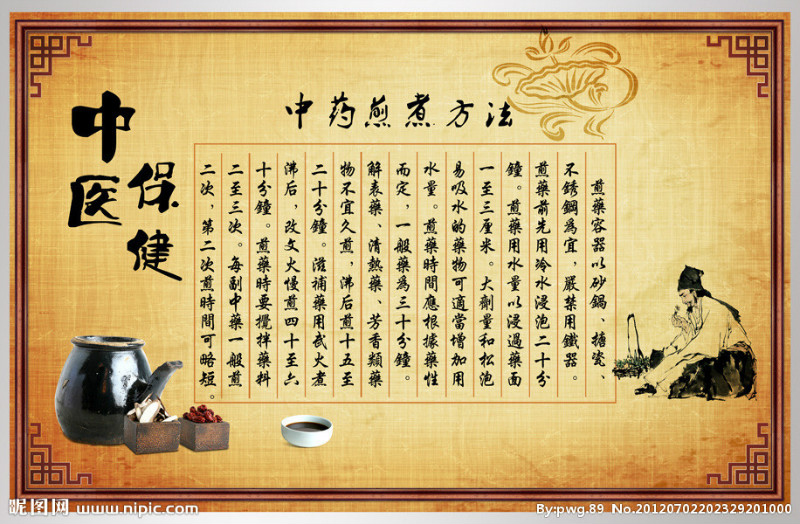 中药煎煮方法
中医
保健
煎藥容器以砂鍋、搪瓷、
不銹鋼為宜，嚴禁用鐵器。
煎藥前先用冷水浸泡二十分
鐘。煎藥用水量以浸過藥面
一至三厘米。大劑量和松泡
易吸水的藥物可適當增加用
水量。煎藥時間應根據藥性
而定，一般藥為三十分鐘。
解表藥、清熱藥、芳香類藥
物不宜久煎，沸后煎十五至
二十分鐘。滋補藥用武火煮
沸后，改文火慢煎四十至六
十分鐘。煎藥時要攪拌藥料
二至三次。每副中藥一般煎
二次，第二次煎時間可略短。
昵图网 www.nipic.com
By:pwg.89 No.20120702202329201000